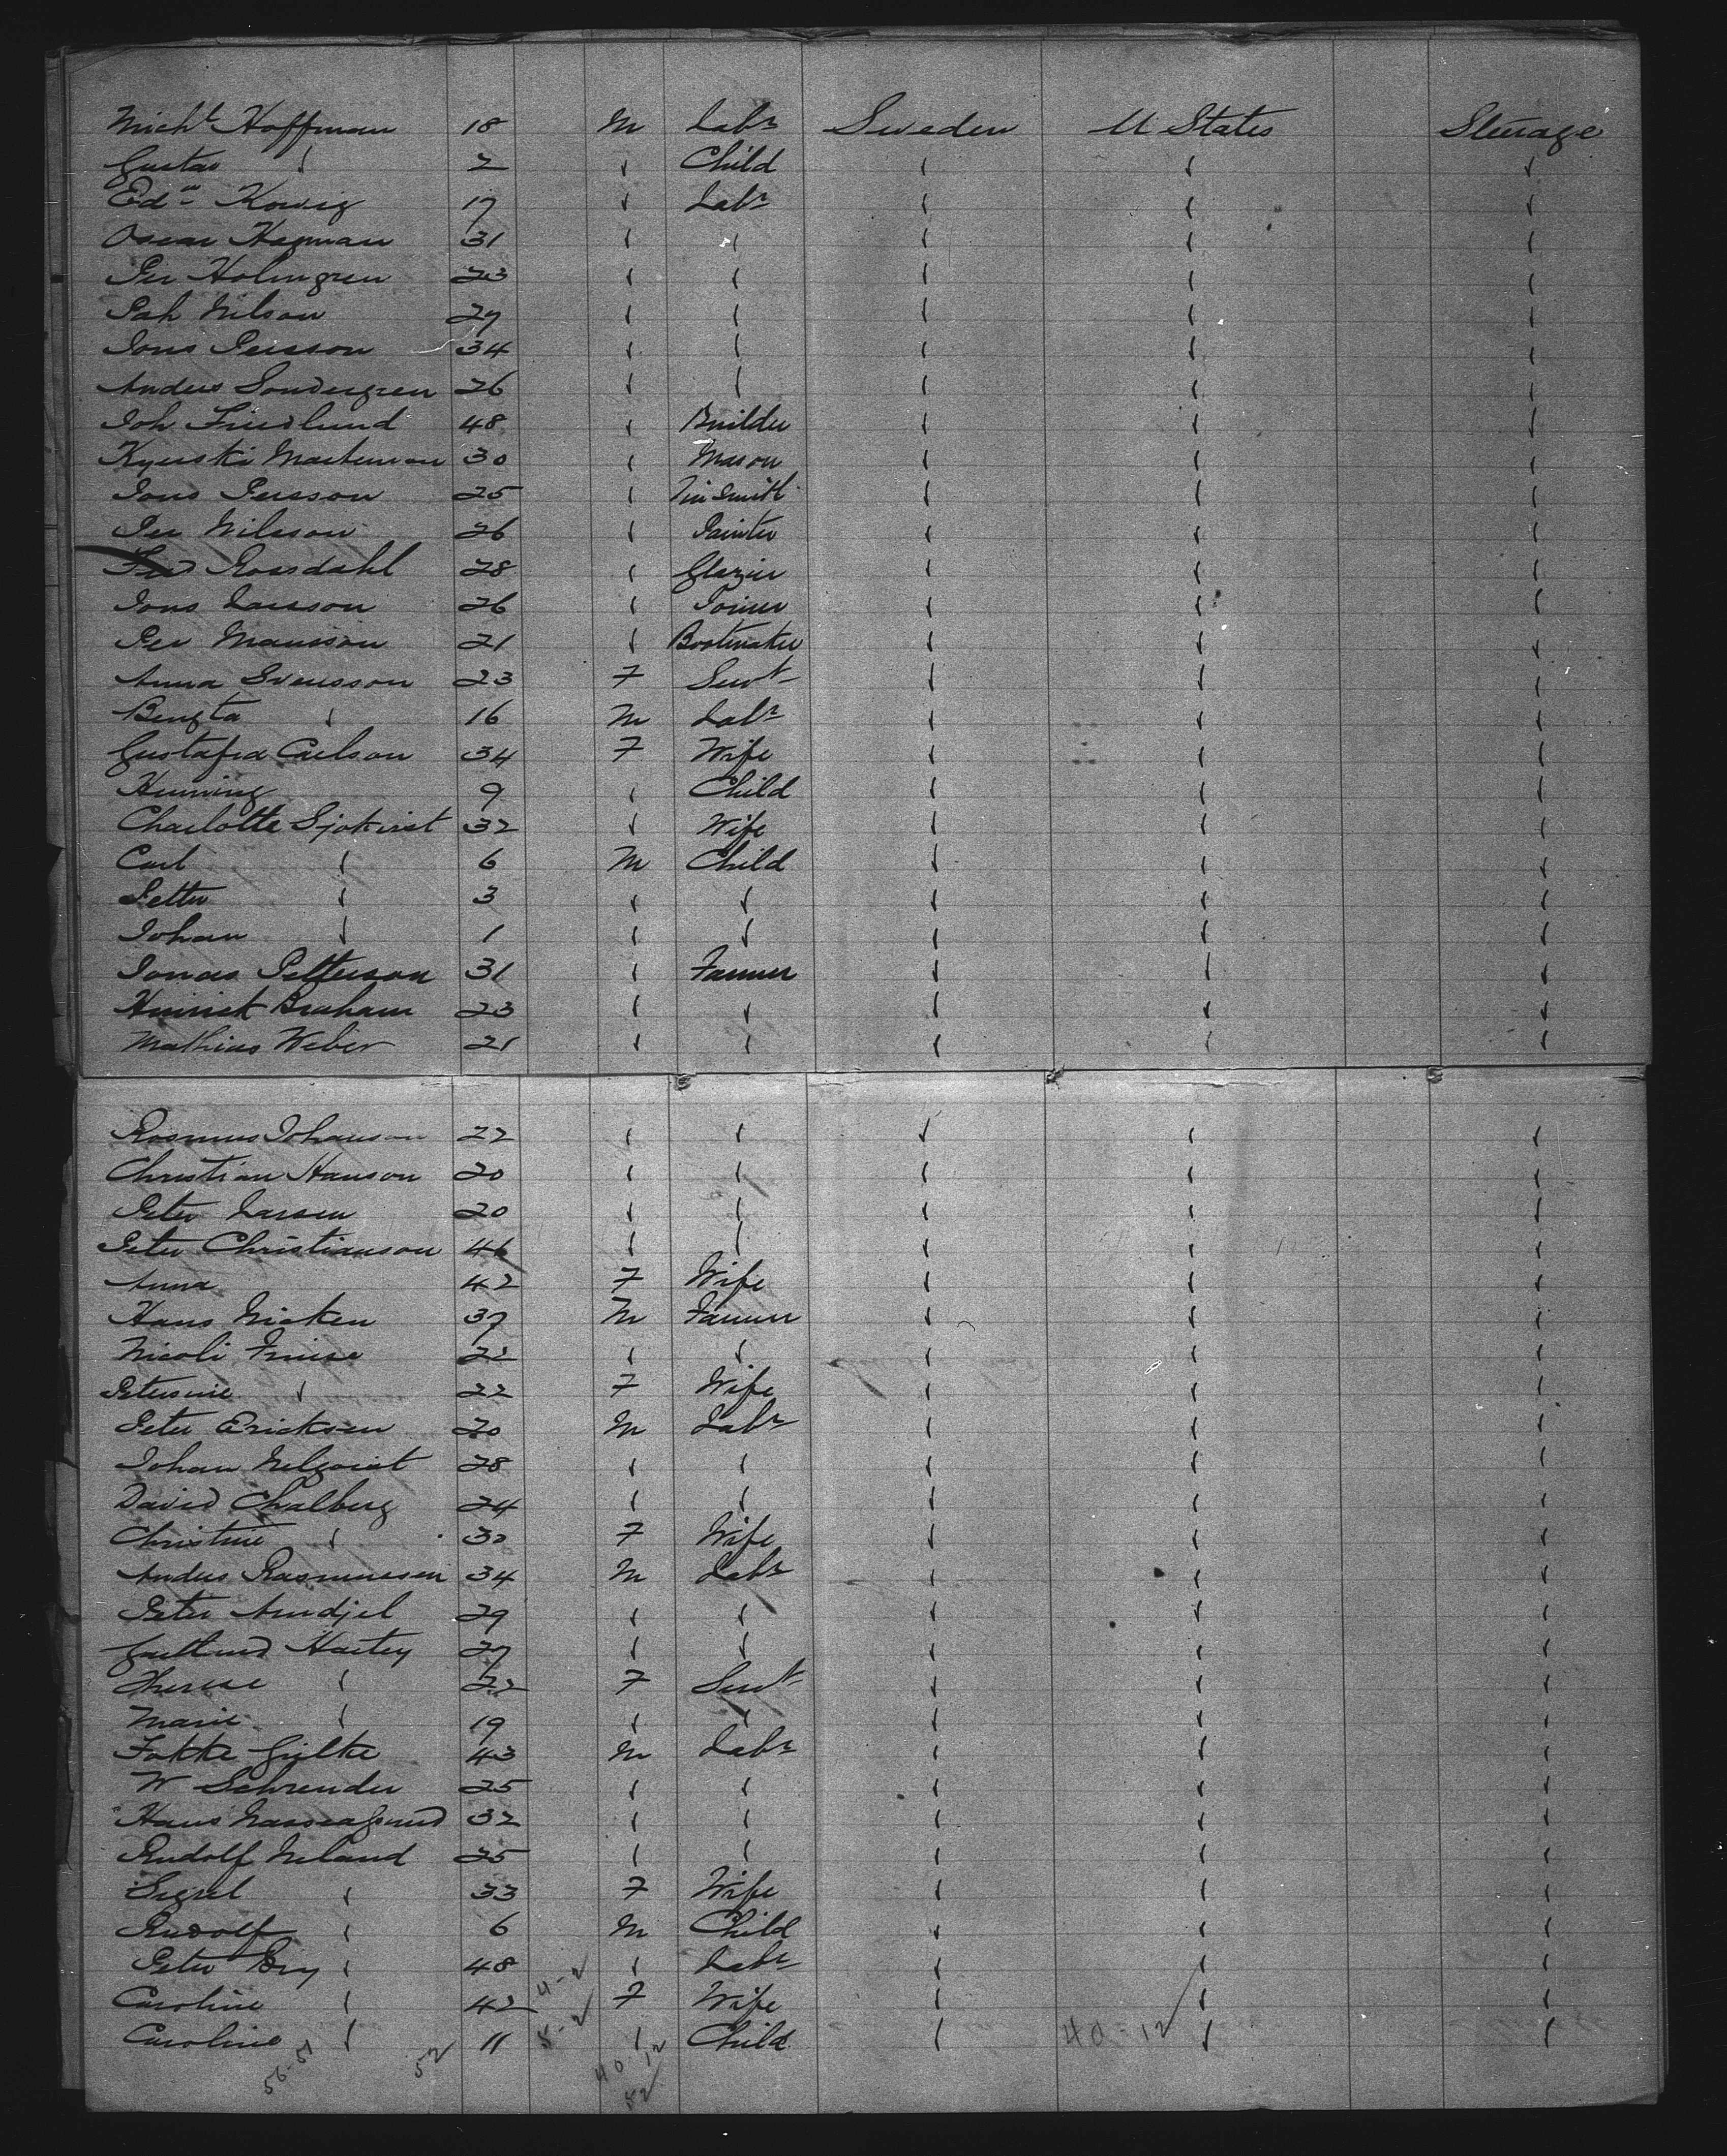 Mich^l Hoffman 18 M Lab^r Sweden U States Steerage
Gustav " 2 " Child " " "
Ed^m Kowig 17 " Lab^r " " "
Oscar Hagman 31 " " " " "
Per Holmgren 23 " " " " "
Pah Nilson 27 " " " " "
Jons Persson 34 " " " " "
Anders Sondergren 26 " " " " "
Joh Friedlund 48 " Builder " " "
Martenson 30 " Mason " " "
Jons Persson 25 " Tin Smith " " "
Per Nilsson 26 " Painter " " "
Rosdahl 28 " Glazier " " "
Jons Larsson 26 " Joiner " " "
Per Mansson 21 " Bootmaker " " "
Anna Svensson 23 F Serv^t " " "
Bengta " 16 M Lab^r " " "
Gustafva Carlson 34 F Wife " " "
Henning 9 " Child " " "
Charlotte Sjokvist 32 " Wife " " "
Carl " 6 M Child " " "
Petter " 3 " " " " "
Johan " 1 " " " " "
Jonas Petterson 31 " Farmer " " "
Hinrick Braham 23 " " " " "
Mathias Weber 21 " " " " "
Rasmus Johanson 22 " " " " "
Christian Hanson 20 " " " " "
Peter Larsen 20 " " " " "
Peter Christianson 46 " " " " "
Anna 42 F Wife " " "
Hans Nicken 37 M Farmer " " "
Nicoli Friise 22 " " " " "
Petersine " 22 F Wife " " "
Peter Ericksen 20 M Lab^r " " "
Johan Nelquist 28 " " " " "
David Chalberg 24 " " " " "
Christine " 30 F Wife " " "
Anders Rasmussen 34 M Lab^r " " "
Peter Arndjel 29 " " " " "
Hartey 27 " " " " "
Therese " 22 F Serv^t " " "
Marie " 19 " " " " "
Fokke Gilke 43 M Lab^r " " "
W Schrender 25 " " " " "
Hans 32 " " " " "
Rudolf Neland 25 " " " " "
Sigrel " 33 F Wife " " "
Rudolf " 6 M Child " " "
Peter Bry " 48 " Lab^r " " "
Caroline " 42 4-2 F Wife " " "
Caroline " 11 5-2 " Child " 40-12 " "
56-51 52 40 12
52